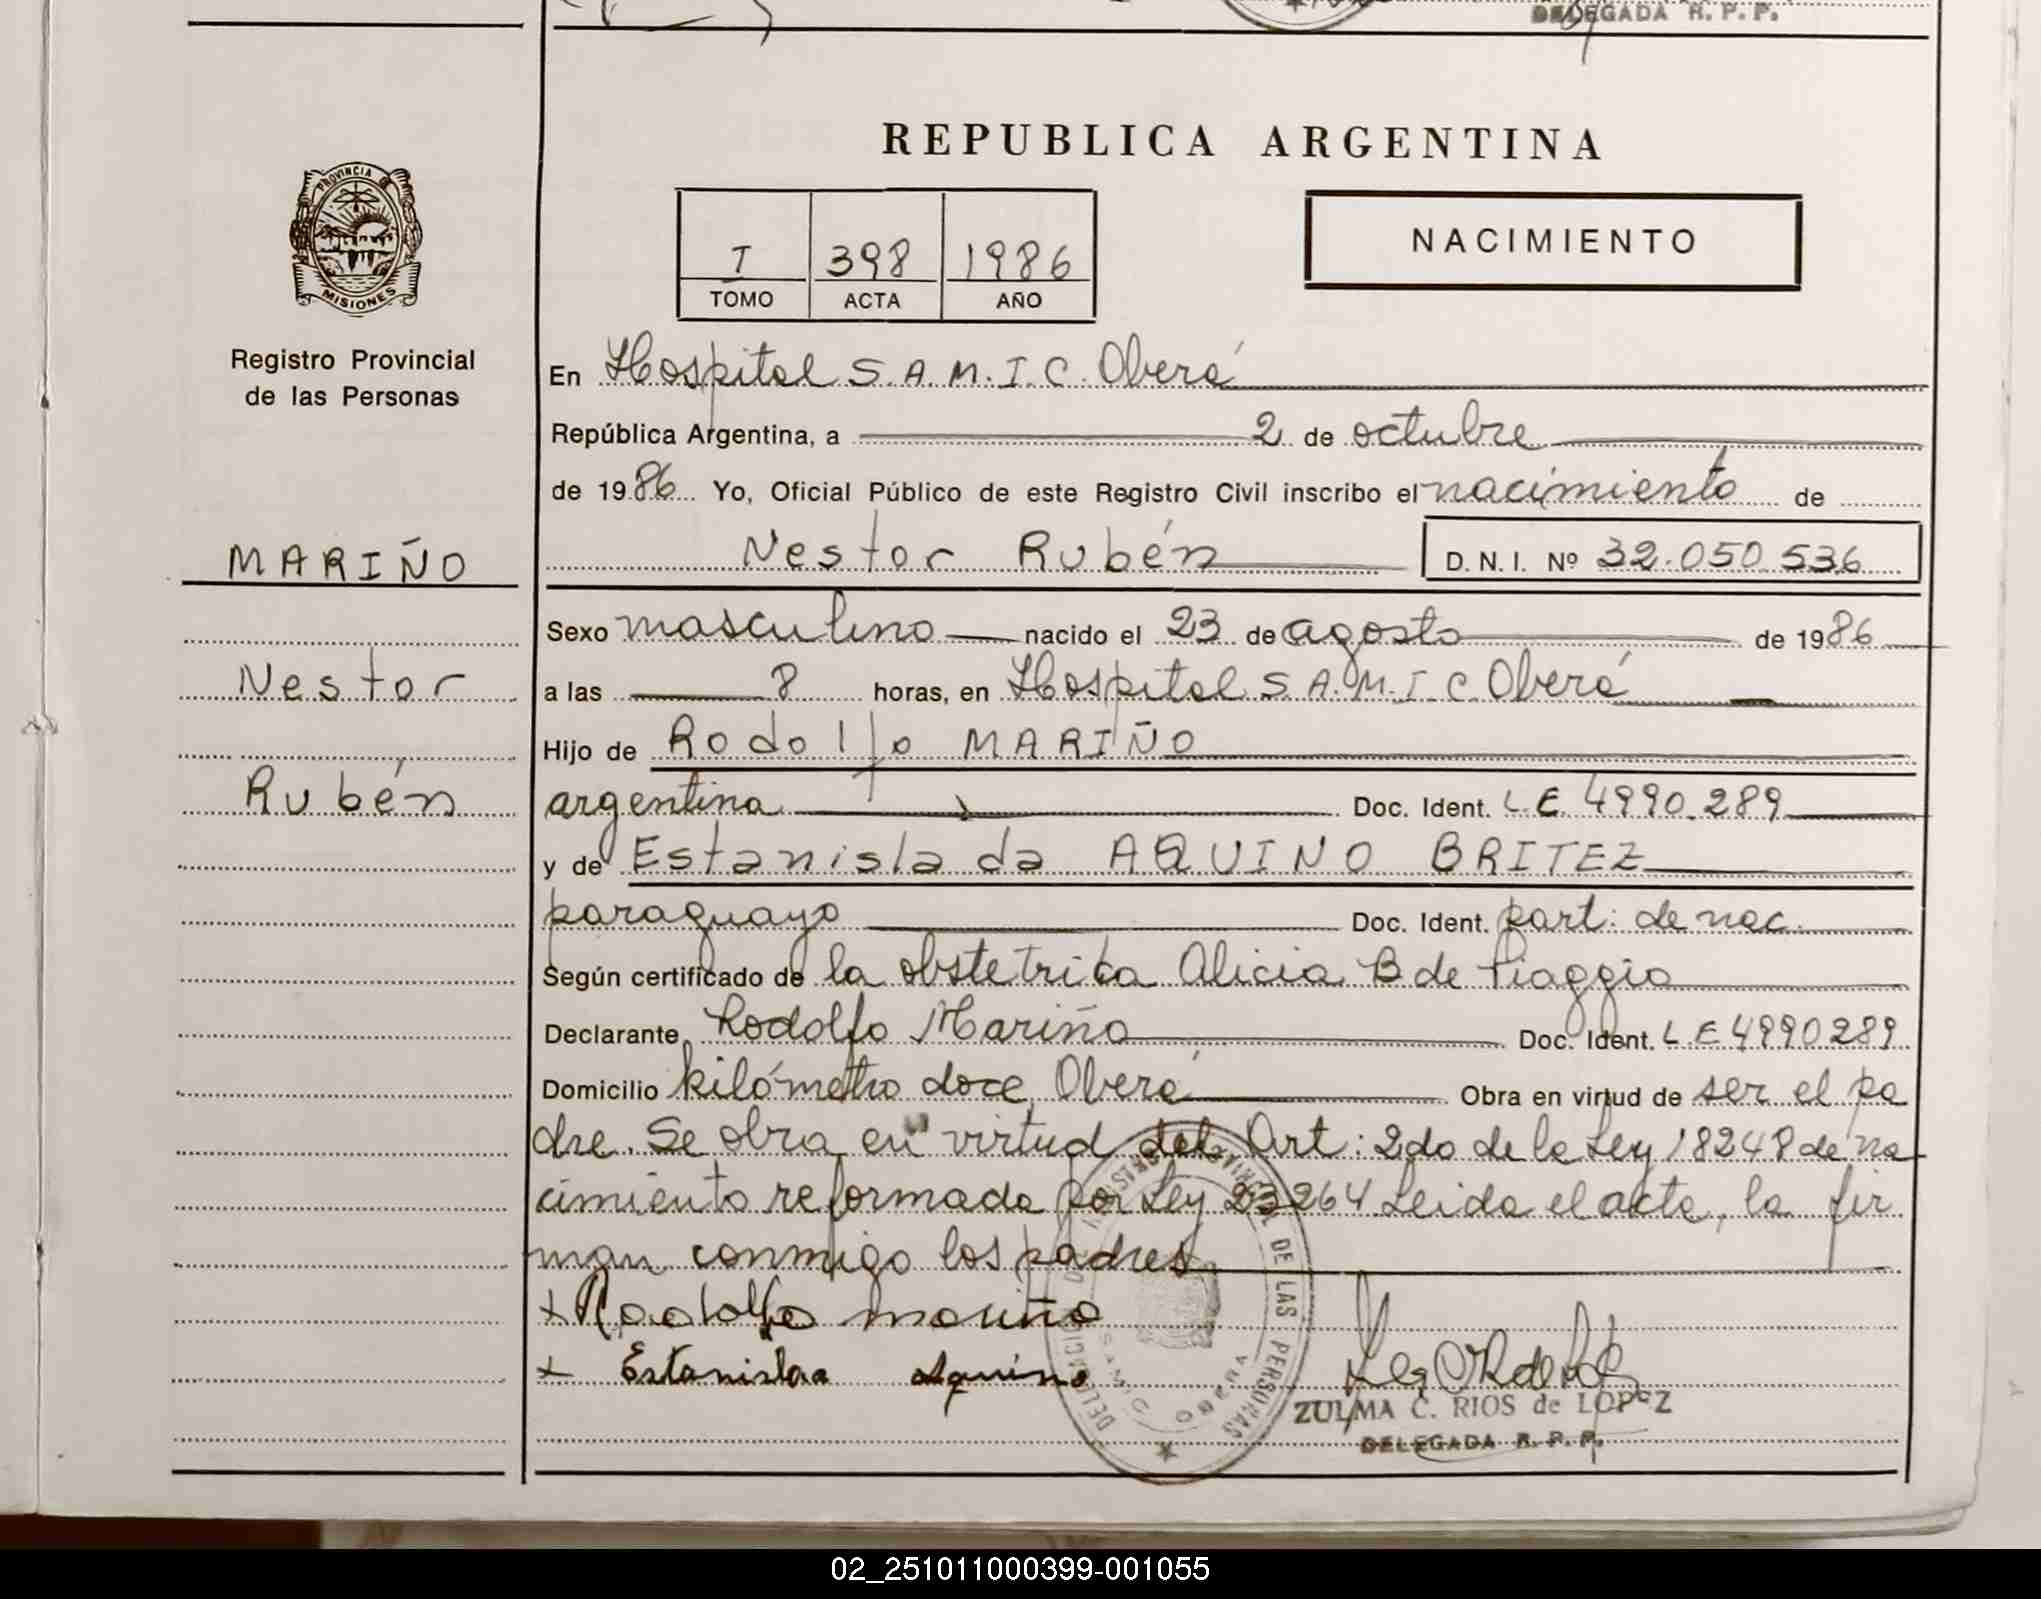 DELEGADA R. P. P.
REPUBLICA ARGENTINA
PROVINCIA DE
MISIONES
Registro Provincial
de las Personas
I 398 1986
TOMO ACTA AÑO
NACIMIENTO
En Hospital S.A.M.I.C. Oberá
República Argentina, a 2 de octubre
de 1986 Yo, Oficial Público de este Registro Civil inscribo el nacimiento de
MARIÑO
Nestor Rubén D. N. I. Nº 32.050.536
Sexo masculino nacido el 23 de agosto de 1986
Nestor
a las 8 horas, en Hospital S.A.M.I.C Oberá
Hijo de Rodolfo MARIÑO
Rubén
argentina Doc. Ident. L.E. 4990.289
y de Estanislada AQUINO BRITEZ
paraguaya Doc. Ident. part: de nac.
Según certificado de la obstetrica Alicia B de Piaggio
Declarante Rodolfo Mariño Doc. Ident. L.E 4990289
Domicilio kilómetro doce Oberá Obra en virtud de ser el pa
dre. Se obra en virtud del Art: 2do de la Ley 18248 de na
cimiento reformada por Ley 23264 Leida el acta, la fir
man conmigo los padres
+ Rodolfo mariño
+ Estanislaa Aquino
ZULMA C. RIOS de LOPEZ
DELEGADA R. P. P.
DE LAS PERSONAS
SAMIC OBERA
02_251011000399-001055